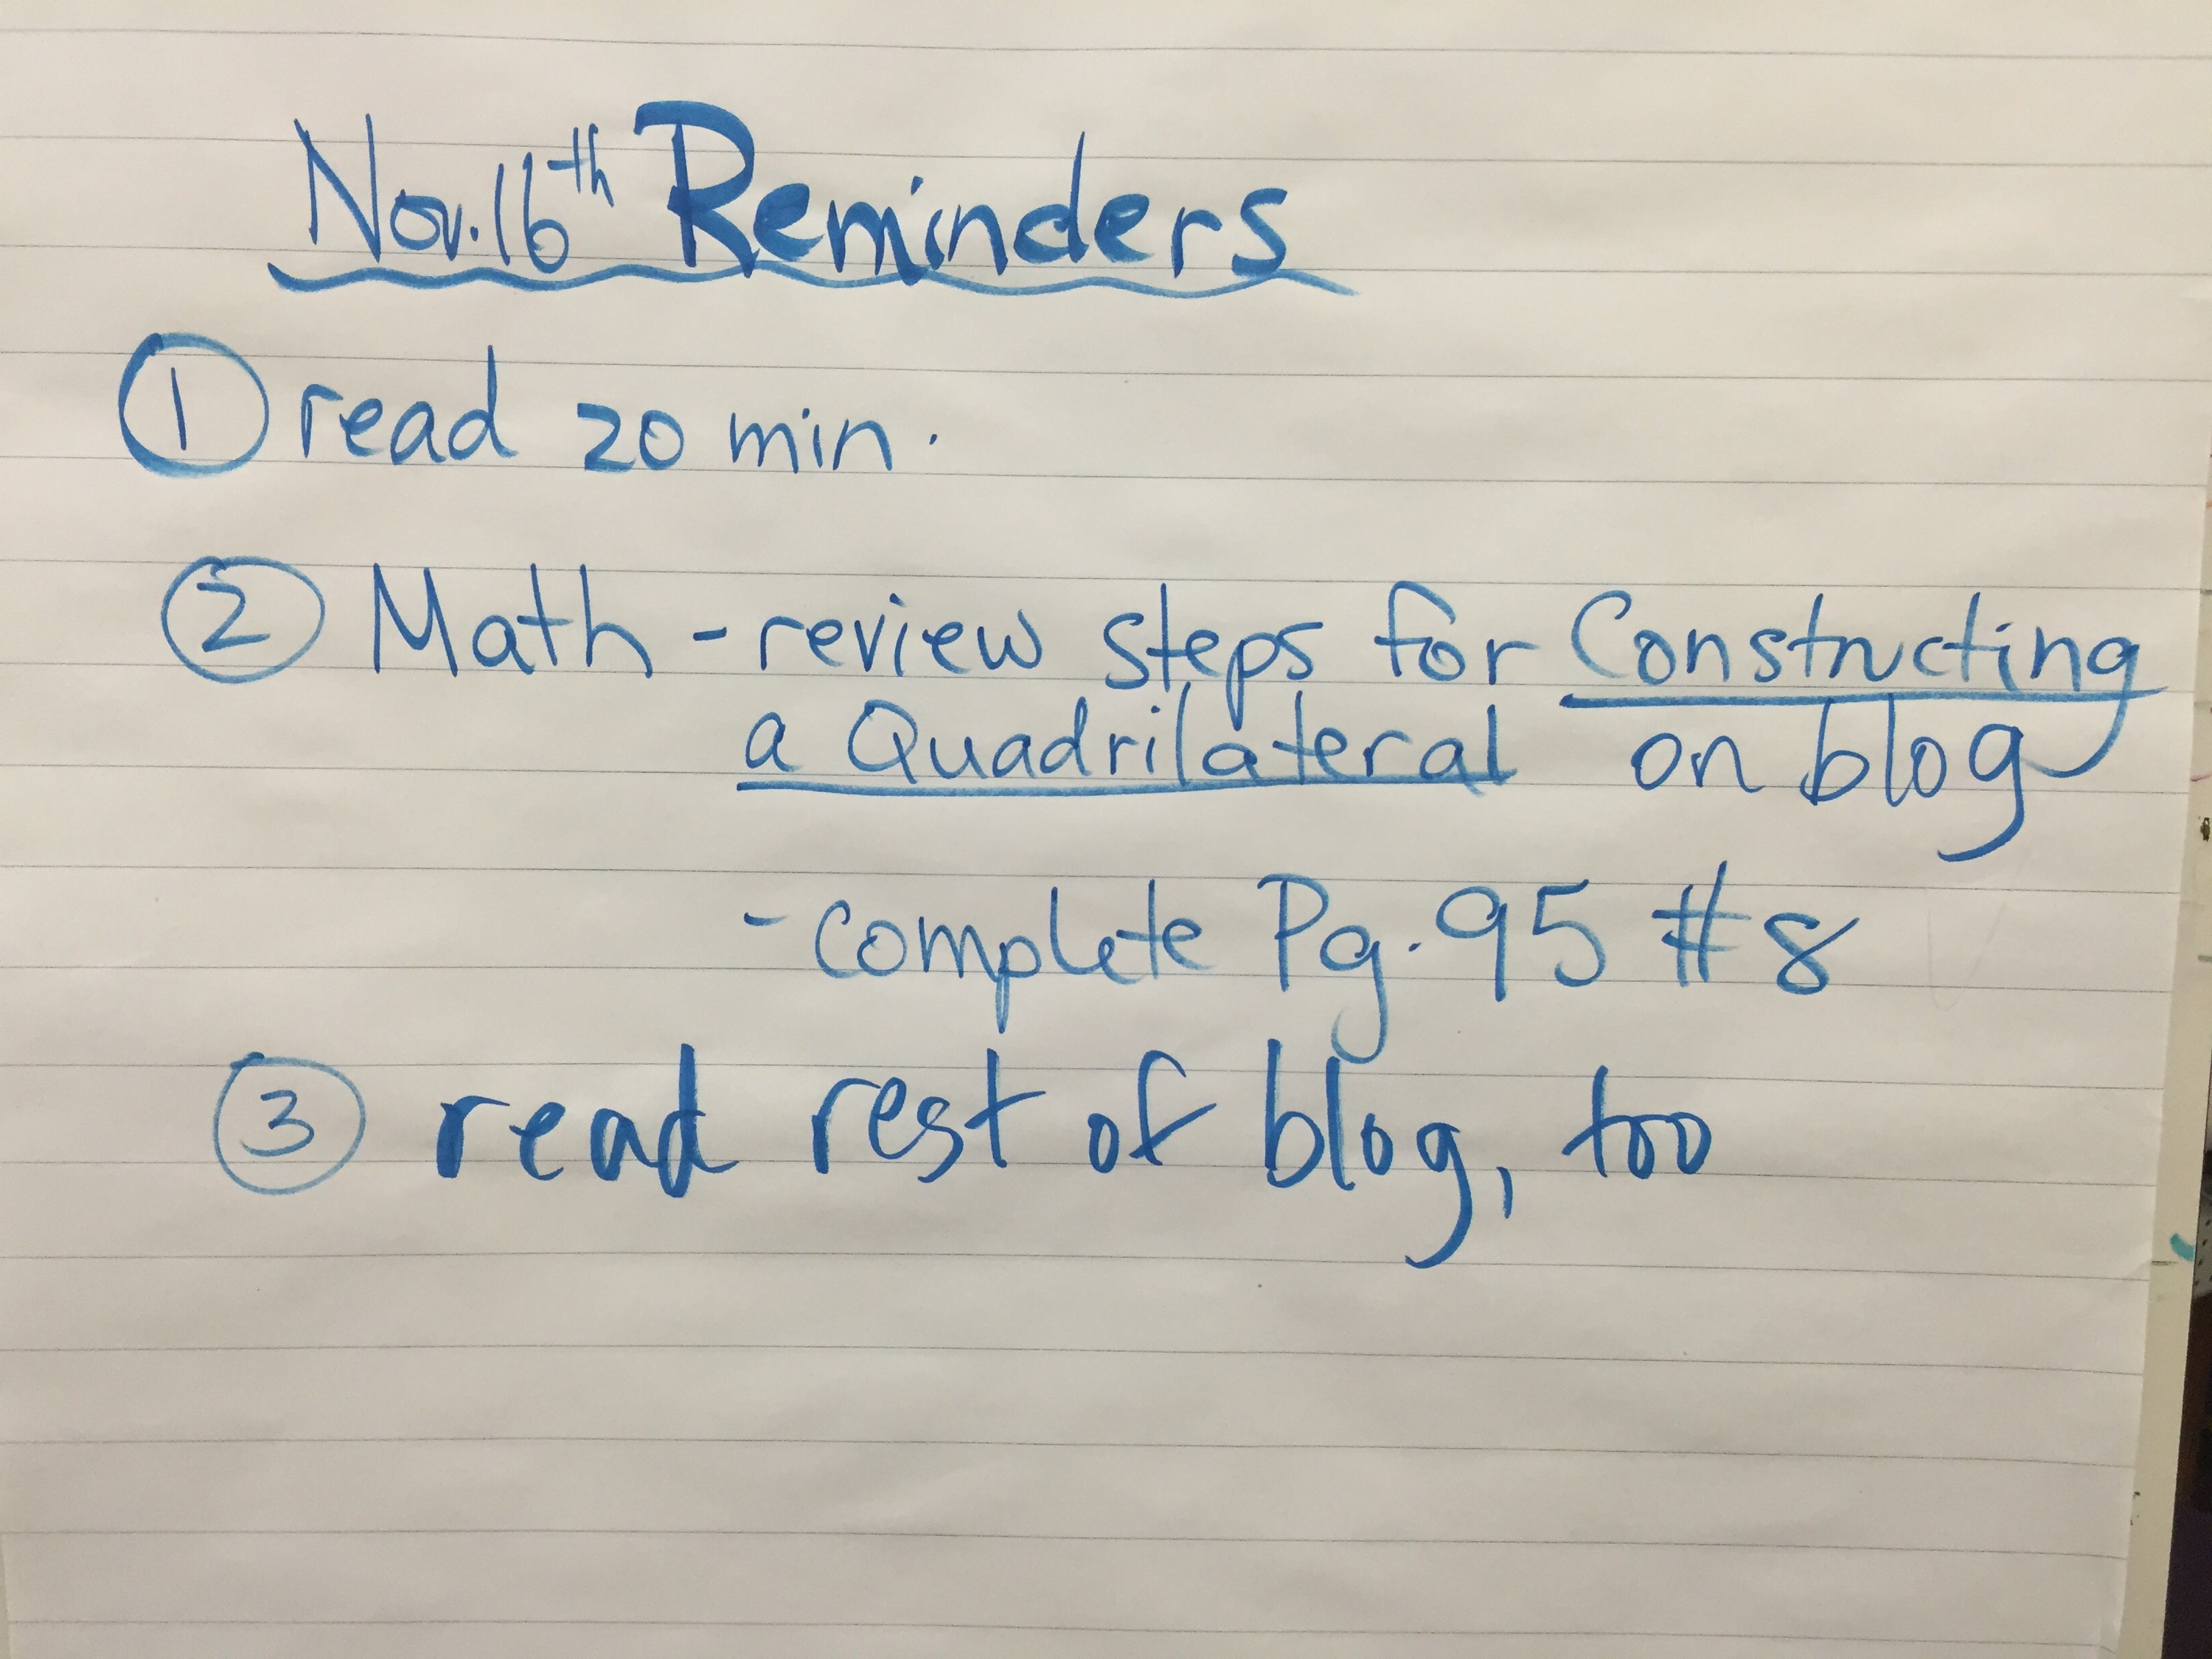 Nov. 16th Reminders
① read 20 min.
② Math - review steps for Constructing
a Quadrilateral on blog
- complete Pg. 95 #8
③ read rest of blog, too